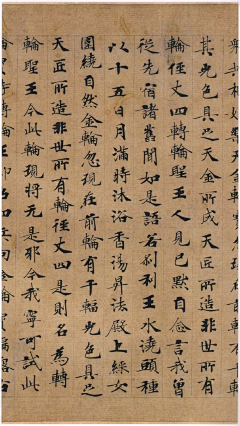 其光色具足天金所成天匠所造非世所有
輪徑丈四轉輪聖王人見已默自念言我曾
從先宿諸舊聞如是語若刹利王水澆頭種
以十五日月滿時沐浴香湯昇法殿上婇女
圍繞自然金輪忽現在前輪有千輻光色具足
天匠所造非世所有輪徑丈四是則名為轉
輪聖王今此輪現將无是耶今我寧可試此